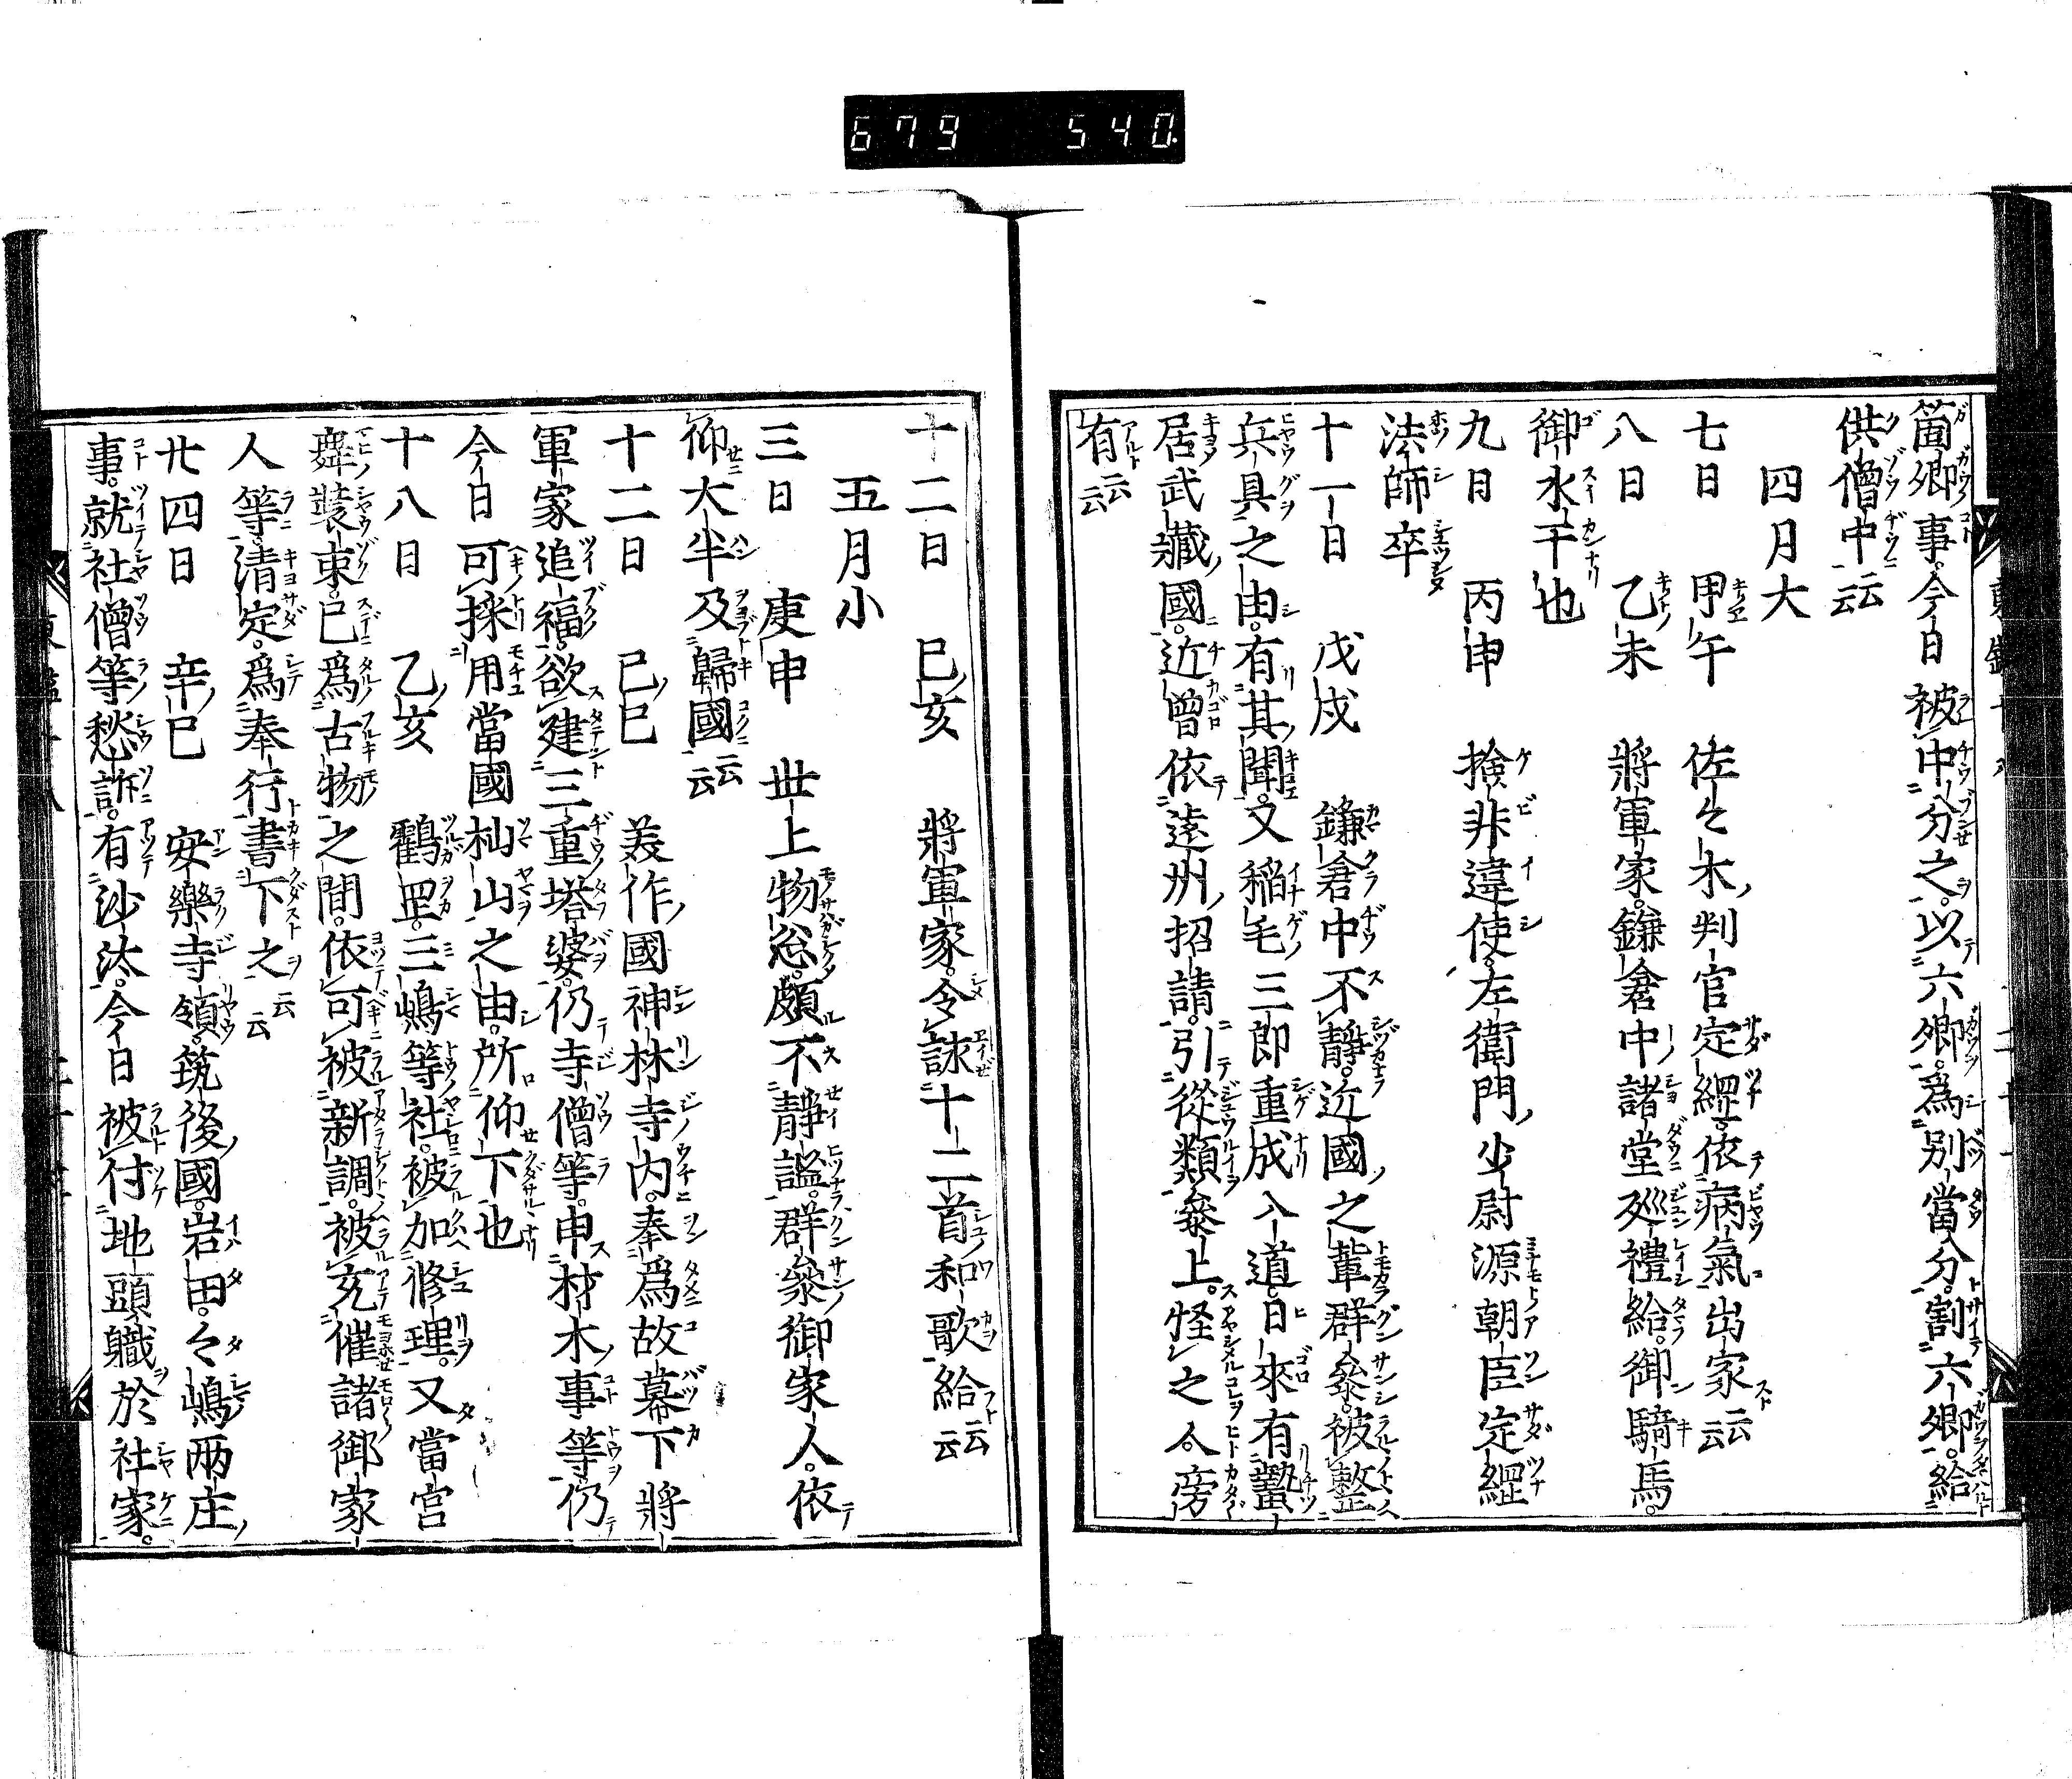 679 540
箇郷事。今日被中分之。以六郷。爲別當分。割六郷。給
供僧中云云
四月大
七日 甲午 佐々木判官定綱。依病氣出家云云
八日 乙未 將軍家。鎌倉中諸堂巡禮給。御騎馬。
御水干也
九日 丙申 検非違使。左衛門少尉源朝臣定綱
法師卒
十一日 戊戌 鎌倉中不靜。近國之輩群參。被整
兵具之由。有其聞。又稲毛三郎重成入道。日來有蟄
居武藏國。近曾依遠州招請。引從類參上。怪之人。旁
有云云
十二日 己亥 將軍家。令詠十二首和歌給云云
五月小
三日 庚申 世上物忩。頗不靜謐。群參御家人。依
仰大半及歸國云云
十二日 己巳 美作國神林寺内。奉爲故幕下將
軍家追福。欲建三重塔婆。仍寺僧等。申材木事等。仍
今日可採用當國杣山之由。所仰下也
十八日 乙亥 鶴罡。三嶋等社。被加修理。又當宮
舞裝束。已爲古物之間。依可被新調。被充催諸御家
人等。清定。爲奉行書下之云云
廿四日 辛巳 安樂寺領。筑後國。岩田。々嶋兩庄
事。就社僧等愁訴。有沙汰。今日被付地頭職於社家。